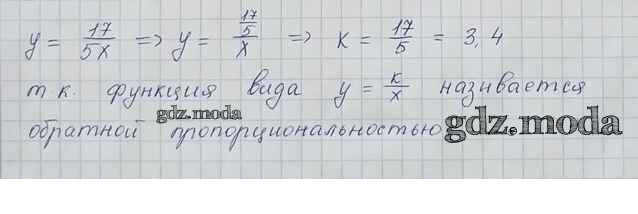 y = 17/5x => y = 17/5/x => K = 17/5 = 3,4
т.к. функция вида y = к/x называется
gdz.moda
обратной пропорциональностью gdz.moda